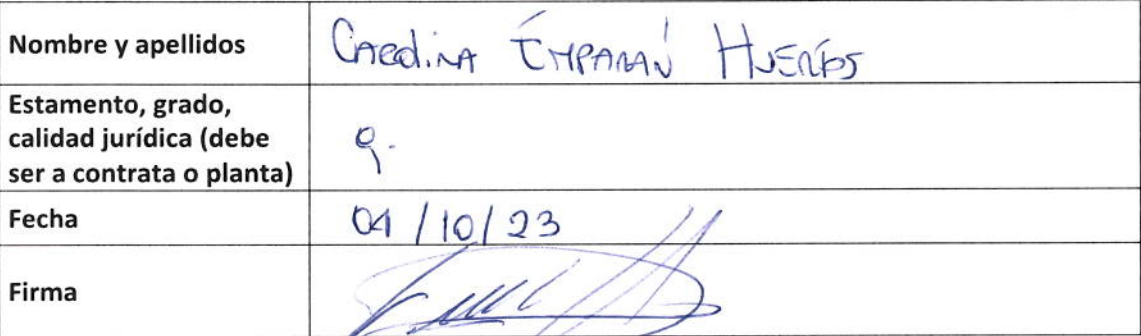 Nombre y apellidos Carolina Emparan
Estamento, grado,
calidad jurídica (debe
ser a contrata o planta) 9.
Fecha 04/10/23
Firma